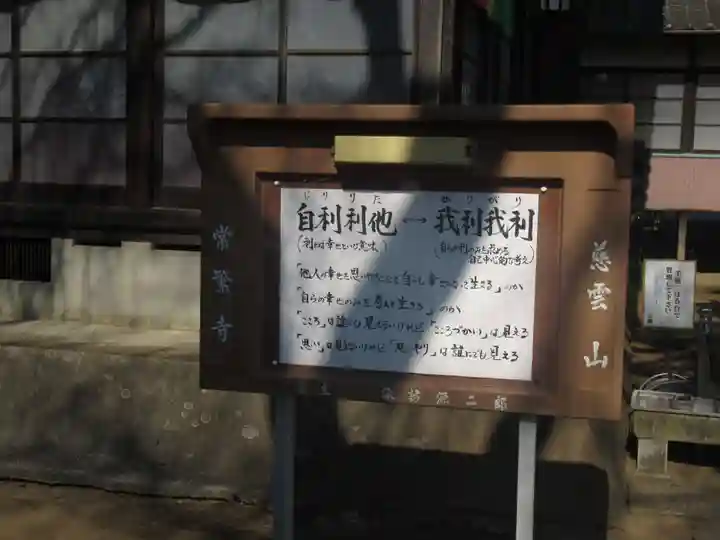 慈雲山
じりりた
がりがり
自利利他 ↔ 我利我利
(利とは幸せという意味)
(自らの利のみを求める
自己中心的な考え)
「他人の幸せを思いやることで自らも幸せになって生きる」のか
「自らの幸せのみを考えて生きる」のか
「こころ」は誰にも見えないけれど「こころづかい」は見える
「思い」は見えないけれど「思いやり」は誰にでも見える
常繁寺
二郎